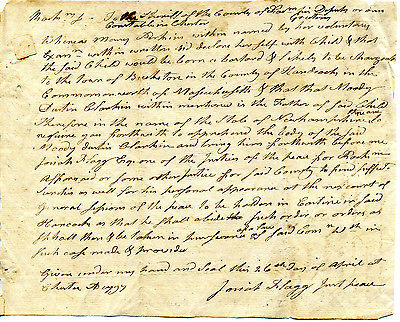 To the Sheriff of the County of his Deputy or
Constable in Chester
Whereas Mary Perkin within named by her voluntary
Exam.n within written did declare herself with Child & that
the said Child would be born a bastard & likely to be chargeable
to the town of Buckston in the County of Hancock in the
Commonwealth of Massachusetts & that that Moody
Dustin Clarkin within mentioned is the Father of said Child
These are
Therefore in the name of the State of Newhampshire to
require you forthwith to apprehend the body of the said
Moody Dustin Clarkin and bring him forthwith before me
Josiah Flagg Esqr one of the Justices of the peace for
Afforesaid or some other Justice for said County to find suffict
Sureties as well for his personal appearance at the next court of
General sessions of the peace to be holden in Castine in said
Hancock as that he shall abide such order or orders as
shall then & be taken in pursuance of a law of said
such case made & provided
Given under my hand and seal this 26th day of April at
Chester
Josiah Flagg Just peace